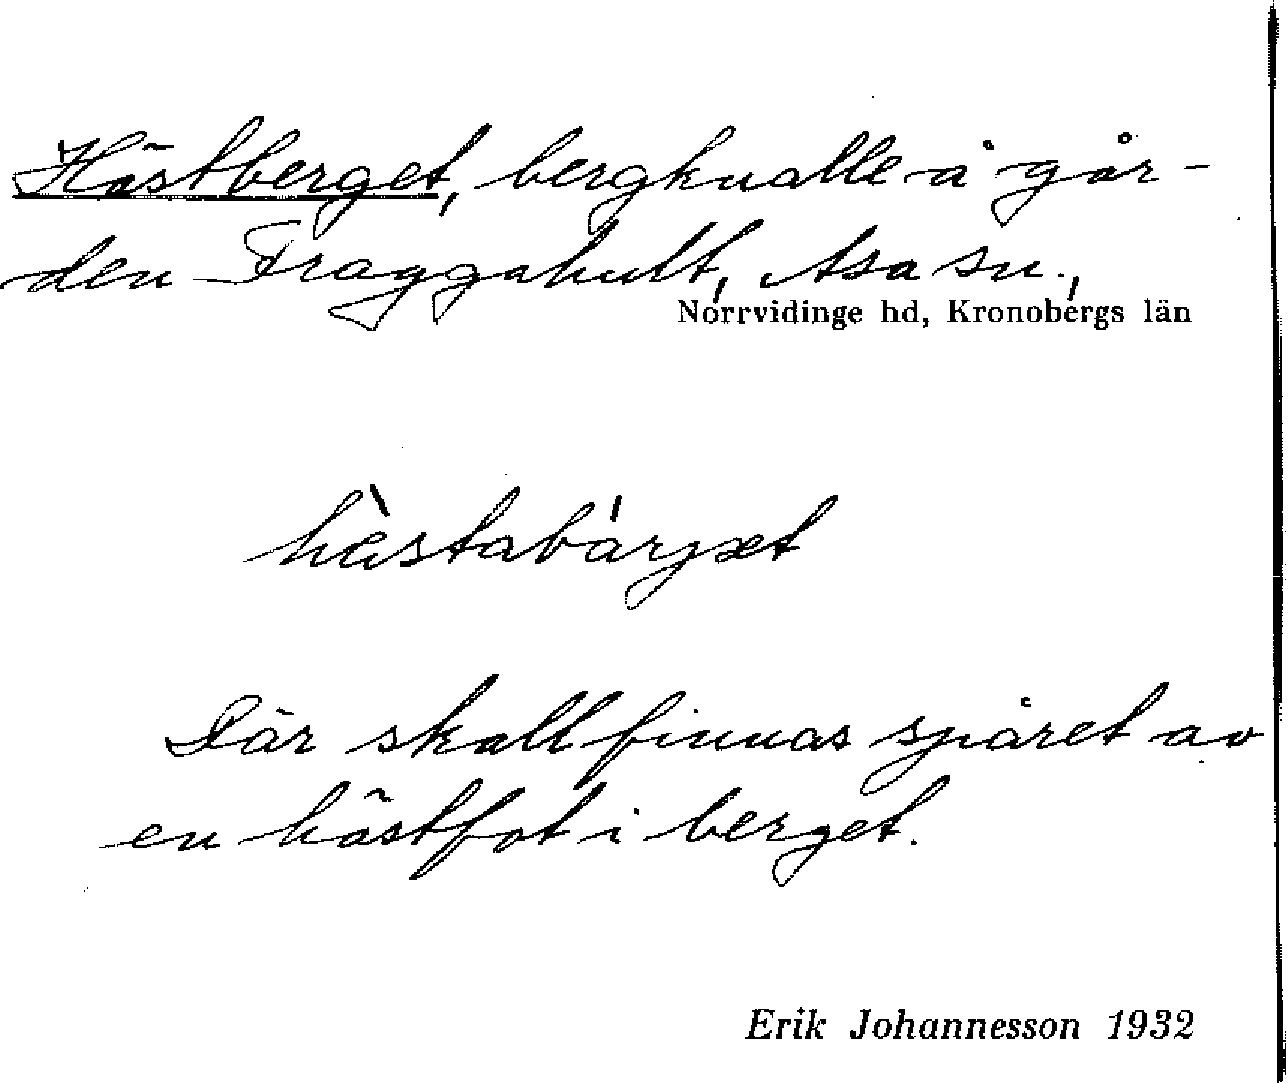 Hästberget, bergknalle å går-
den Fraggahult, Asa sn.,
Norrvidinge hd, Kronobergs län
hàstabáryæt
Där skall finnas spåret av
en hästfot i berget.
Erik Johannesson 1932